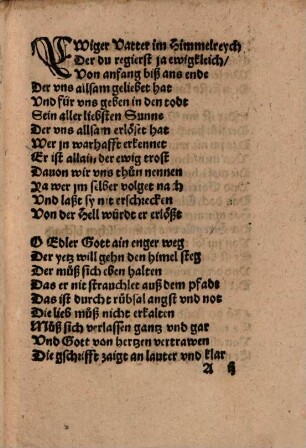 EWiger Vatter im Himmelreych
Der du regierst ja ewigkleich/
Von anfang biß ans ende
Der vns allsam geliebet hat
Vnd für vns geben in den todt
Sein aller liebsten Sunne
Der vns allsam erlöset hat
Wer jn warhafft erkennet
Er ist allain der ewig trost
Dauon wir vns thůn nennen
Ja wer jm selber volget nach
Vnd laßt sy nit erschrecken
Von der Hell würdt er erlößt
O Edler Gott ain enger weg
Der yetz will gehn den himel steg
Der můß sich eben halten
Das er nit strauchlet auß dem pfadt
Das ist durch trübsal angst vnd not
Die lieb můß nicht erkalten
Můß sich verlassen gantz vnd gar
Vnd Gott von hertzen vertrawen
Die gschrifft zaigt an lauter vnd klar
A ij